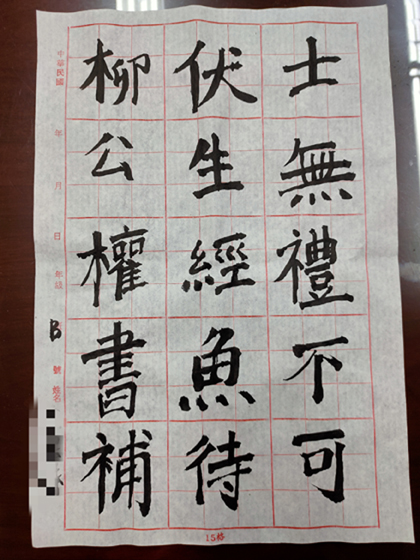 士無禮不可
伏生經魚待
柳公權書補
中華民國
年
月
日
年級
B
號
姓名
15格